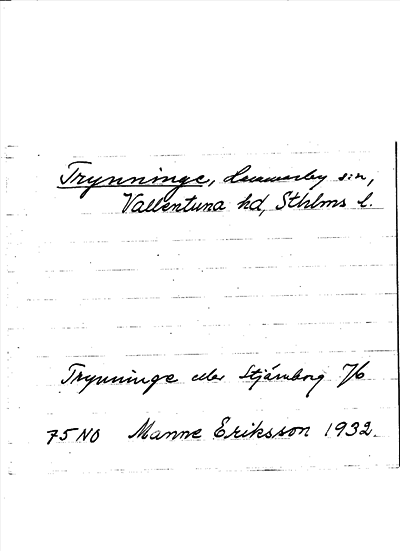 Trynninge, Hammarby s:n,
Vallentuna hd, Sthlms l.
Trynninge eller Stjärnborg 7/6
75 NO Manne Eriksson 1932.